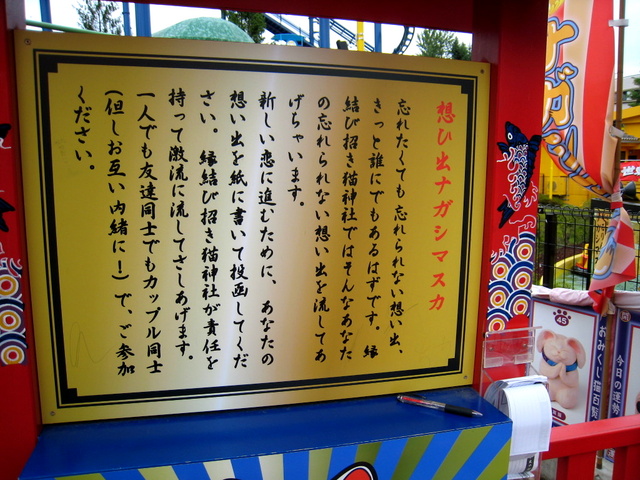 想ひ出ナガシマスカ
忘れたくても忘れられない想い出、
きっと誰にでもあるはずです。縁
結び招き猫神社ではそんなあなた
の忘れられない想い出を流してあ
げちゃいます。
新しい恋に進むために、あなたの
想い出を紙に書いて投函してくだ
さい。縁結び招き猫神社が責任を
持って激流に流してさしあげます。
一人でも友達同士でもカップル同士
(但しお互い内緒に!)で、ご参加
ください。
45
おみくじ猫百覧
今日の運勢